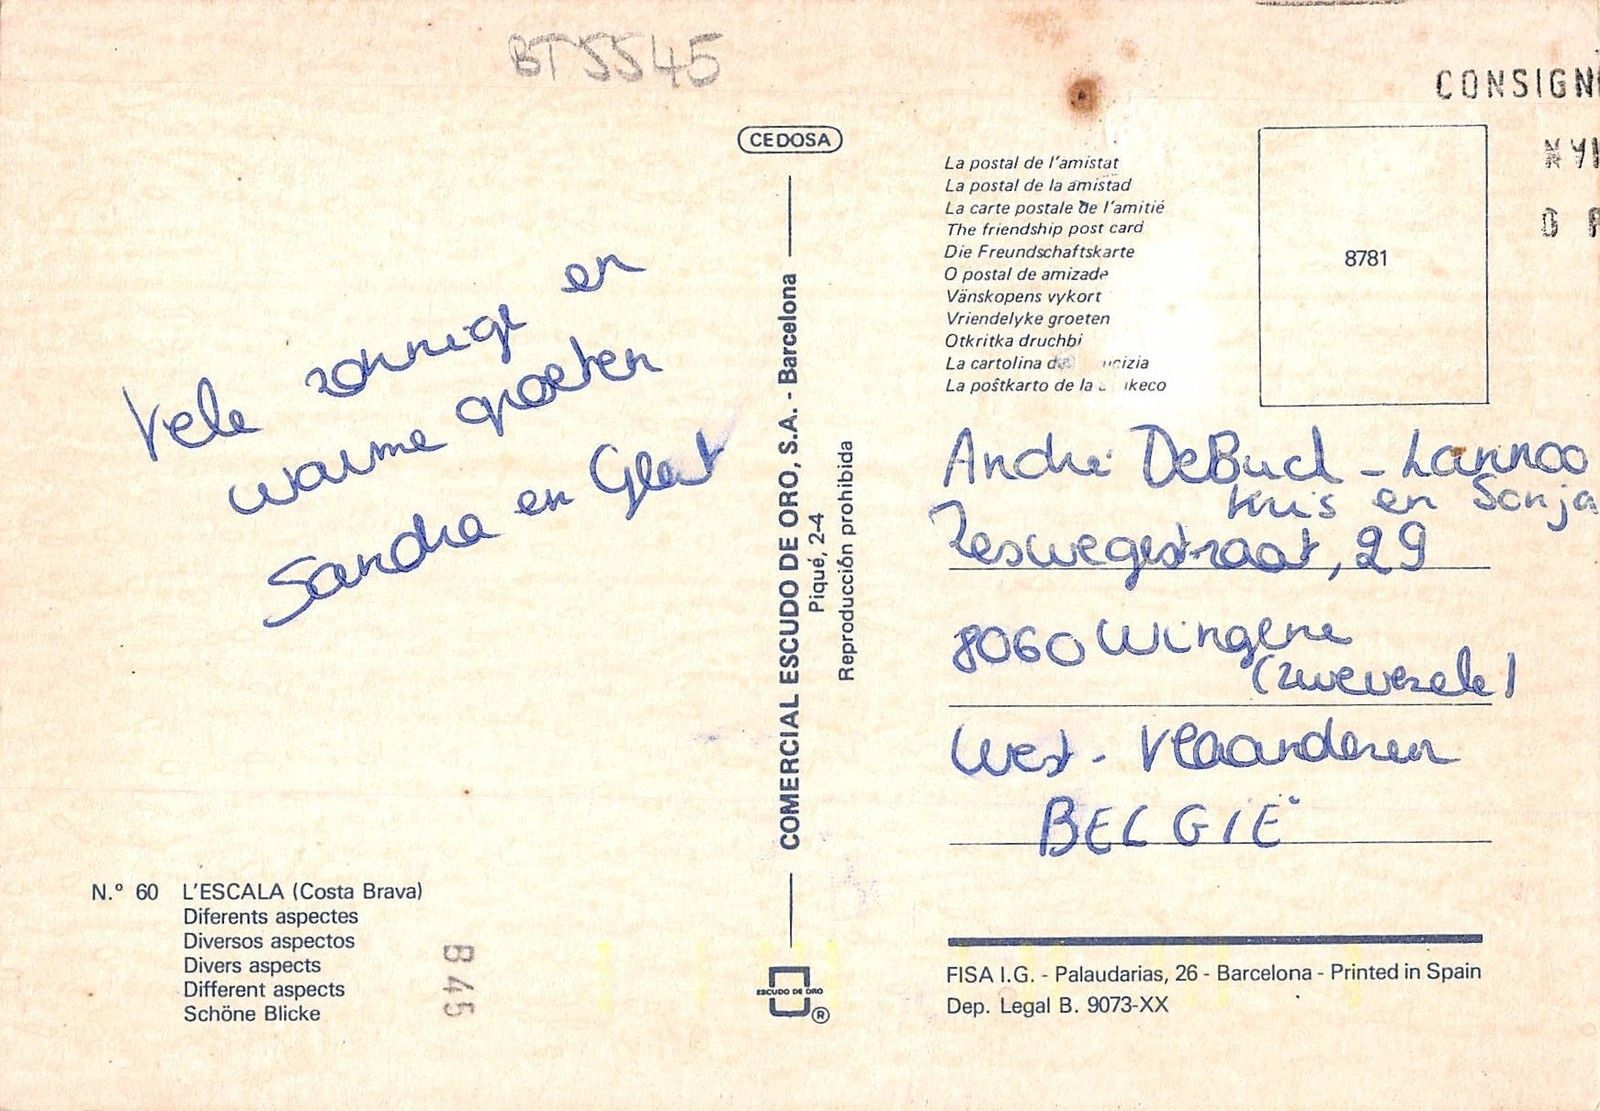 BT5545
CONSIGN
CEDOSA
La postal de l'amistat
La postal de la amistad
La carte postale de l'amitié
The friendship post card
Die Freundschaftskarte
O postal de amizade
Vänskopens vykort
Vriendelyke groeten
Otkritka druchbi
La cartolina
La poŝtkarto de la
8781
Vele zonnige en
warme groeten
Sandra en
COMERCIAL ESCUDO DE ORO, S.A. - Barcelona
Piqué, 2-4
Reproducción prohibida
André - Lannoo
Kris en Sonja
Zeswegestraat, 29
8060 Wingene
(Zwevezele)
West-Vlaanderen
BELGIË
N.º 60 L'ESCALA (Costa Brava)
Diferents aspectes
Diversos aspectos
Divers aspects
Different aspects
Schöne Blicke
B 45
ESCUDO DE ORO
®
FISA I.G. - Palaudarias, 26 - Barcelona - Printed in Spain
Dep. Legal B. 9073-XX